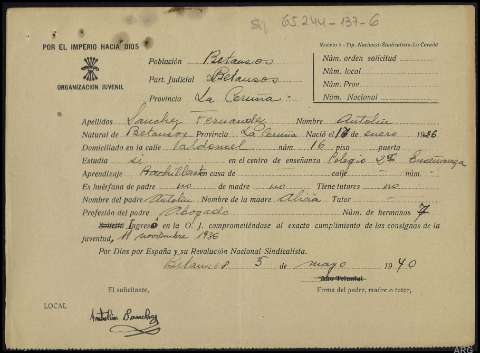 65244-137-6
POR EL IMPERIO HACIA DIOS
ORGANIZACION JUVENIL
Modelo 1 - Tip. Nacional-Sindicalista - La Coruña
Población Betanzos
Part. Judicial Betanzos
Provincia La Coruña
Núm. orden solicitud
Núm. local
Núm. Prov.
Núm. Nacional
Apellidos Sanchez Fernandez Nombre Antolín
Natural de Betanzos Provincia La Coruña Nació el 17 enero 1926
Domiciliado en la calle Valdoncel núm. 16 piso puerta
Estudia si en el centro de enseñanza Colegio 2ª Enseñanza
Aprendizaje en casa de calle núm.
Es huérfano de padre no de madre no Tiene tutores no
Nombre del padre Antolín Nombre de la madre Alicia Tutor -
Profesión del padre Abogado Núm. de hermanos 7
Ingresó en la O. J. comprometiéndose al exacto cumplimiento de las consignas de
la juventud, 11 noviembre 1936
Por Dios por España y su Revolución Nacional Sindicalista.
Betanzos 5 de mayo 1940
Año Triunfal
El solicitante,
Firma del padre, madre o tutor,
LOCAL
Antolín Sanchez
ARG